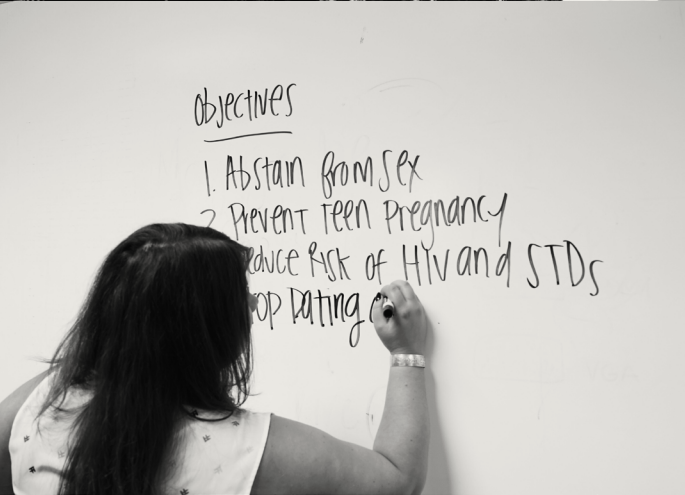 Objectives
1. Abstain from sex
2. Prevent Teen Pregnancy
educe Risk of HIV and STDs
op Dating